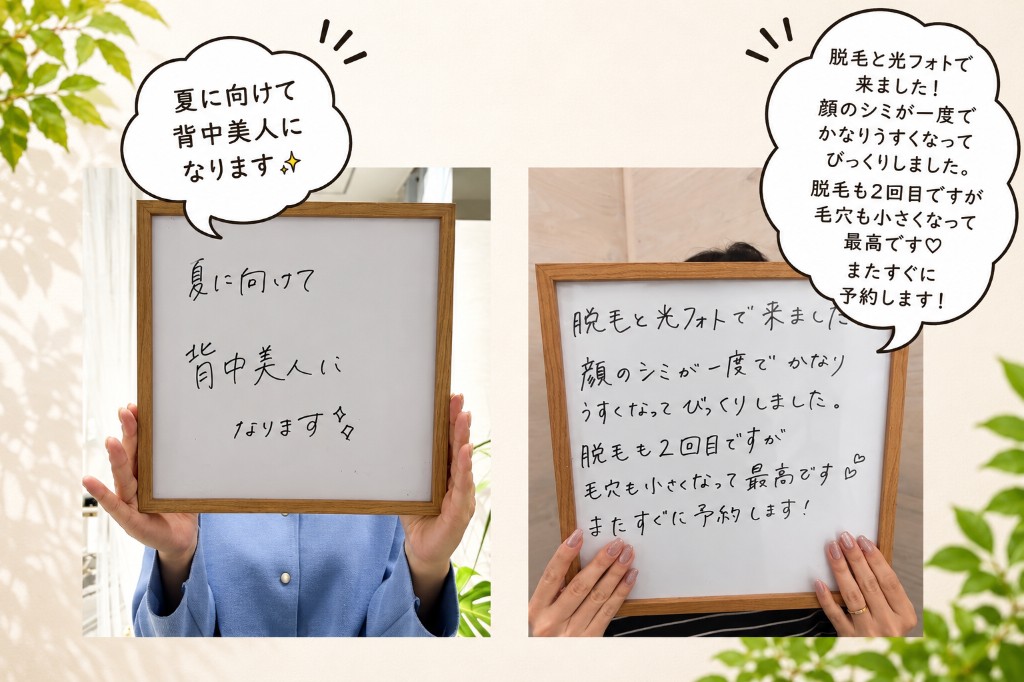 夏に向けて
背中美人に
なります✨
夏に向けて
背中美人に
なります
脱毛と光フォトで
来ました！
顔のシミが一度で
かなりうすくなって
びっくりしました。
脱毛も2回目ですが
毛穴も小さくなって
最高です♡
またすぐに
予約します！
脱毛と光フォトで来ました
顔のシミが一度でかなり
うすくなってびっくりしました。
脱毛も2回目ですが
毛穴も小さくなって最高です♡♡
またすぐに予約します!